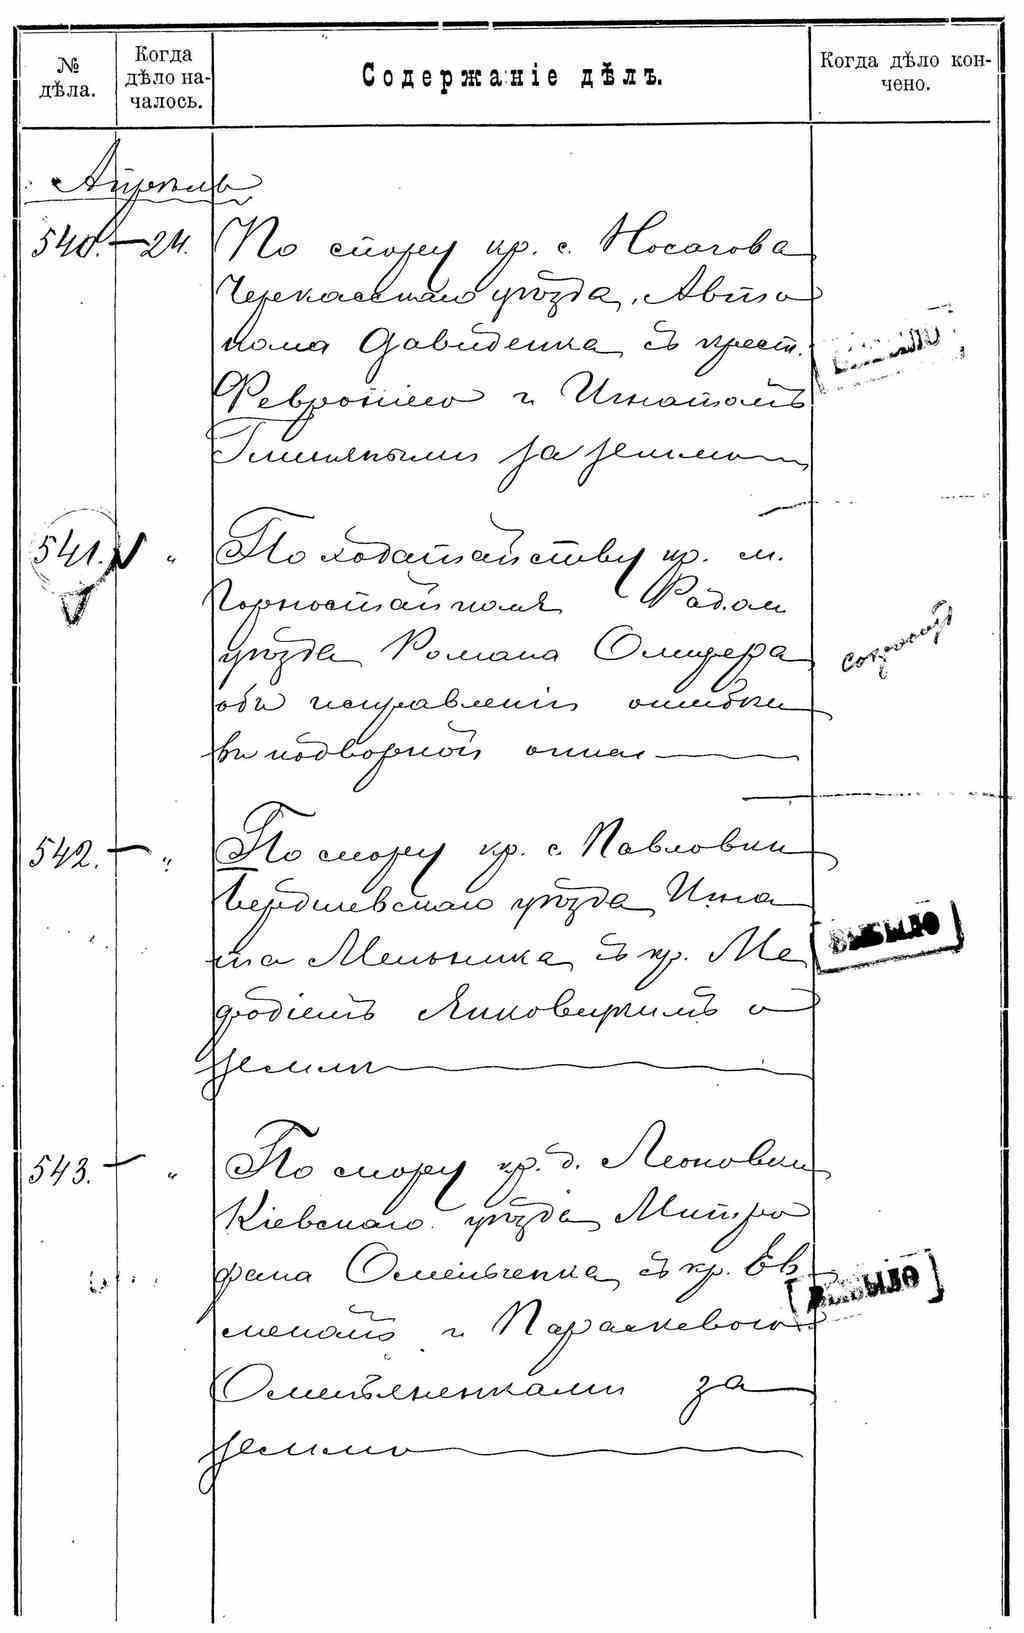 № дѣла.
Когда дѣло на-
чалось.
Содержаніе дѣлъ.
Когда дѣло кон-
чено.
Апрѣль
540. — 24. По спору кр. с. Носачова
Черкасскаго уѣзда, Авто
нома Давиденка съ крест.
ВЫБЫЛО
Февроніею и Игнатомъ
за землю
541. V " По ходатайству кр. м.
Горностайполя Радом.
уѣзда Романа
объ исправленіи ошибки
въ подворной описи
542. — " По спору кр. с. Павловки
Бердичевскаго уѣзда Игна
та Мельника съ кр. Ме
ВЫБЫЛО
фодіемъ Янковецкимъ о
землѣ
543. — " По спору кр. д. Леоновки
Кіевскаго уѣзда Митро
фана Омельченка съ кр. Ев
ВЫБЫЛО
меномъ и Параскевою
за
землю